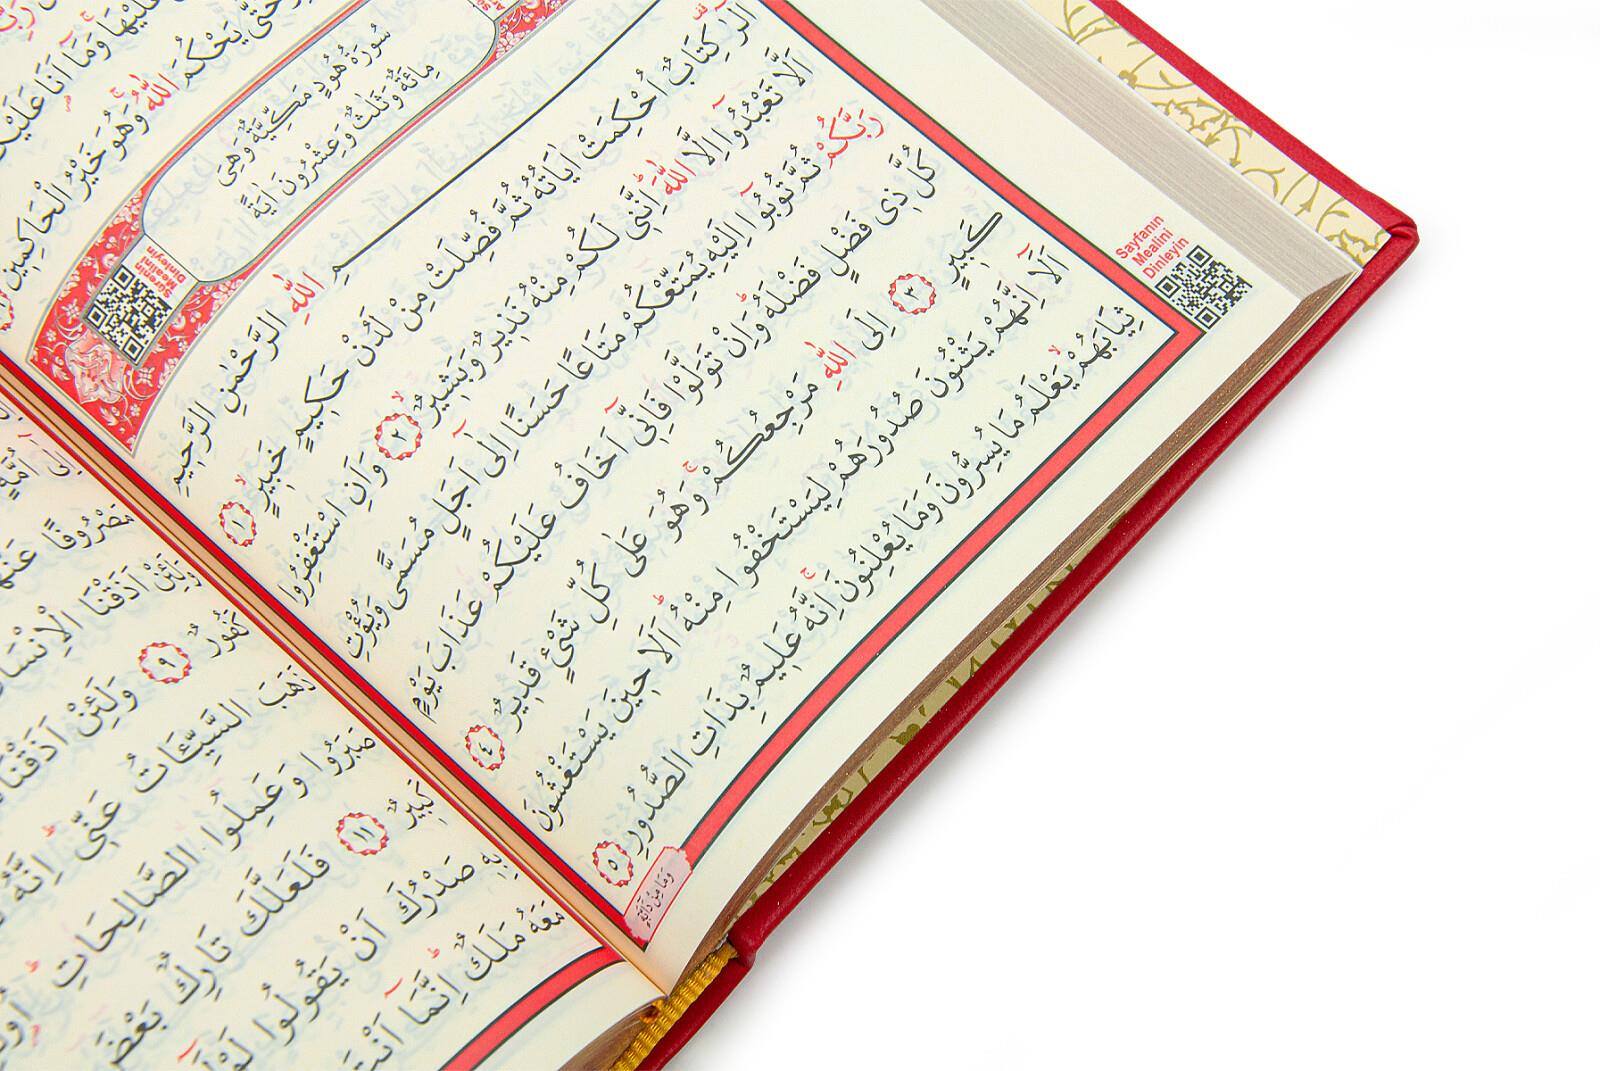 رَبِّ
عَلَيْهَا وَمَٓا اَنَا۬ عَلَيْكُ
حَتّٰى يَحْكُمَ اللّٰهُۚ وَهُوَ خَيْرُ الْحَاكِمٖينَ
سُورَةُ هُودٍ مَكِّيَّةٌ وَهِيَ
مِائَةٌ وَثَلٰثٌ وَعِشْرُونَ اٰيَةً
Sûrenin
Mealini
Dinleyin
بِسْمِ اللّٰهِ الرَّحْمٰنِ الرَّحٖيمِ
الٓرٰ كِتَابٌ اُحْكِمَتْ اٰيَاتُهُ ثُمَّ فُصِّلَتْ مِنْ لَدُنْ حَكٖيمٍ خَبٖيرٍۙ ﴿١﴾
اَلَّا تَعْبُدُٓوا اِلَّا اللّٰهَۜ اِنَّنٖي لَكُمْ مِنْهُ نَذٖيرٌ وَبَشٖيرٌۙ ﴿٢﴾ وَاَنِ اسْتَغْفِرُوا
رَبَّكُمْ ثُمَّ تُوبُٓوا اِلَيْهِ يُمَتِّعْكُمْ مَتَاعًا حَسَنًا اِلٰٓى اَجَلٍ مُسَمًّى وَيُؤْتِ
كُلَّ ذٖي فَضْلٍ فَضْلَهُۜ وَاِنْ تَوَلَّوْا فَاِنّٖٓي اَخَافُ عَلَيْكُمْ عَذَابَ يَوْمٍ
كَبٖيرٍ ﴿٣﴾ اِلَى اللّٰهِ مَرْجِعُكُمْۚ وَهُوَ عَلٰى كُلِّ شَيْءٍ قَدٖيرٌ ﴿٤﴾
اَلَٓا اِنَّهُمْ يَثْنُونَ صُدُورَهُمْ لِيَسْتَخْفُوا مِنْهُۜ اَلَا حٖينَ يَسْتَغْشُونَ
ثِيَابَهُمْۙ يَعْلَمُ مَا يُسِرُّونَ وَمَا يُعْلِنُونَۚ اِنَّهُ عَلٖيمٌ بِذَاتِ الصُّدُورِ ﴿٥﴾
وَمَا مِنْ دَٓابَّةٍ
Sayfanın
Mealini
Dinleyin
اُمَّةٍ
مَصْرُوفًا عَنْهُ
وَلَئِنْ اَذَقْنَا الْاِنْسَانَ
كَفُورٌ ﴿٩﴾ وَلَئِنْ اَذَقْنَا
ذَهَبَ السَّيِّـَٔاتُ عَنّٖيۜ اِنَّهُ
صَبَرُوا وَعَمِلُوا الصَّالِحَاتِۜ
كَبٖيرٌ ﴿١١﴾ فَلَعَلَّكَ تَارِكٌ بَعْضَ
بِهٖ صَدْرُكَ اَنْ يَقُولُوا لَوْلَٓا
مَعَهُ مَلَكٌۜ اِنَّمَٓا اَنْتَ